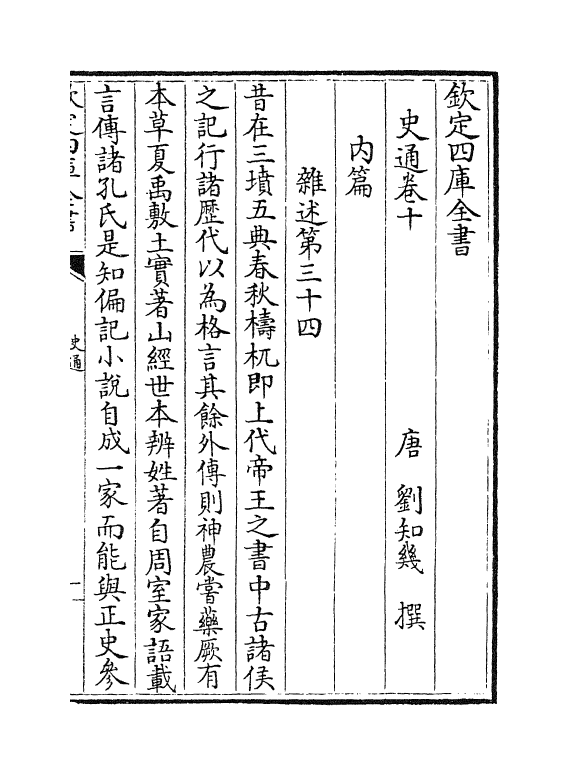 欽定四庫全書
史通卷十
唐 劉知幾 撰
内篇
雜述第三十四
昔在三墳五典春秋檮杌即上代帝王之書中古諸侯
之記行諸歴代以為格言其餘外傳則神農嘗藥厥有
本草夏禹敷土實著山經世本辨姓著自周室家語載
言傳諸孔氏是知偏記小說自成一家而能與正史參
欽定四庫全書
史通
一